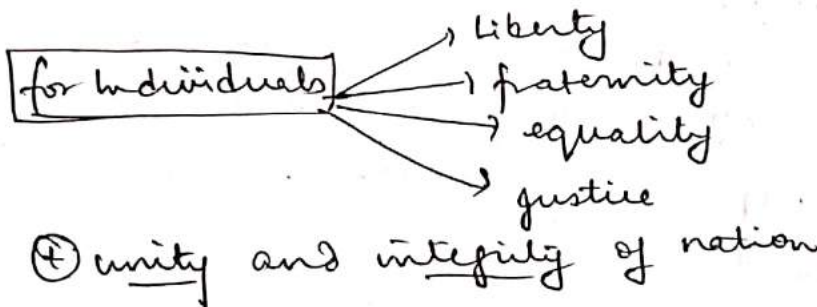 Liberty
for Individuals
fraternity
equality
justice
+ unity and integrity of nation